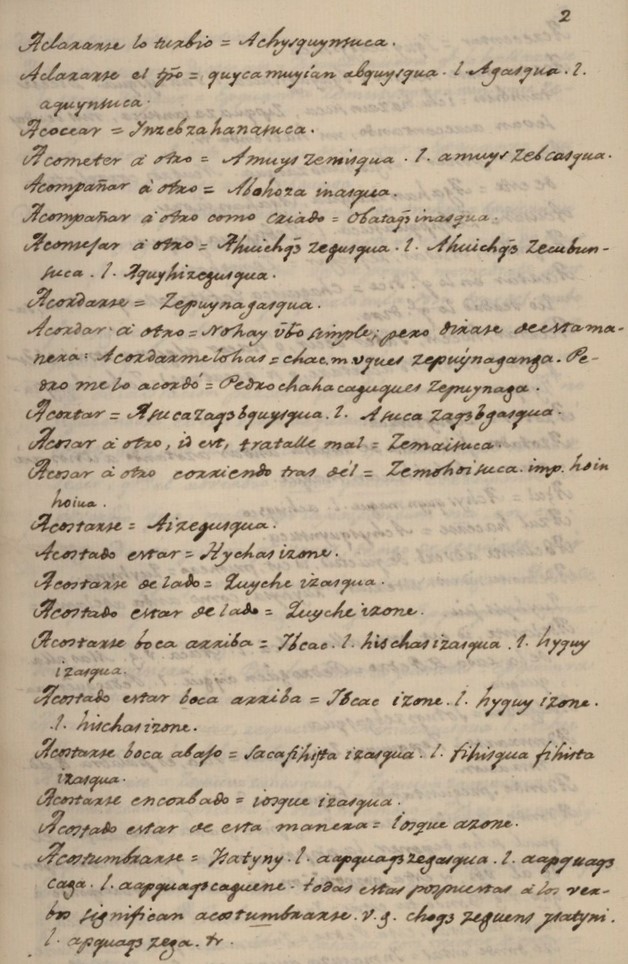 2
Aclararse lo turbio = Achysquynsuca.
Aclararse el tp̃o = quycamuyian abquysqua. l. Agasqua. l.
aquynsuca.
Acocear = Ynzebzahanasuca.
Acometer á otro = Amuys zemisqua. l. amuys zebcasqua.
Acompañar á otro = Abohoza inasqua.
Acompañar á otro como criado = obataqꝫ inasqua.
Aconsejar á otro = Ahuichqꝫ zegusqua. l. Ahuichqꝫ zecubun-
suca. l. Aquyhizegusqua.
Acordarse = Zepuynagasqua.
Acordar á otro = No hay v̄bo simple; pero dirase de esta ma-
nera: Acordarmelo has = chac.m vques zepuynaganga. Pe-
dro me lo acordó = Pedro chahacaguques zepuynaga.
Acortar = Asucazaqꝫbquysqua. l. Asuca zaqꝫbgasqua.
Acosar á otro, id est, tratalle mal = Zemaisuca.
Acosar á otro corriendo tras del = Zemohoisuca. imp. hoiu
hoiua.
Acostarse = Aizegusqua.
Acostado estar = Hychas izone.
Acostarse de lado = Zuyche izasqua.
Acostado estar de lado = Zuyche izone.
Acostarse boca arriba = Ybcac. l. hischas izasqua. l. hyguy
izasqua.
Acostado estar boca arriba = Ybcac izone. l. hyguy izone.
.l. hischas izone.
Acostarse boca abajo = sacafihista izasqua. l. fihisqua fihista
izasqua.
Acostarse encorbado = iosque izasqua.
Acostado estar de esta manera = iosque azone.
Acostumbrarse = Ysatyny. l. aapquaqꝫ zegasqua. l. aapquaqꝫ
caga. l. aapquaqꝫ caguene. todas estas pospuestas á los ver-
bos significan acostumbrarse. v.g. choqꝫ zeguens ysatyni.
l. apquaqꝫ zega. &.